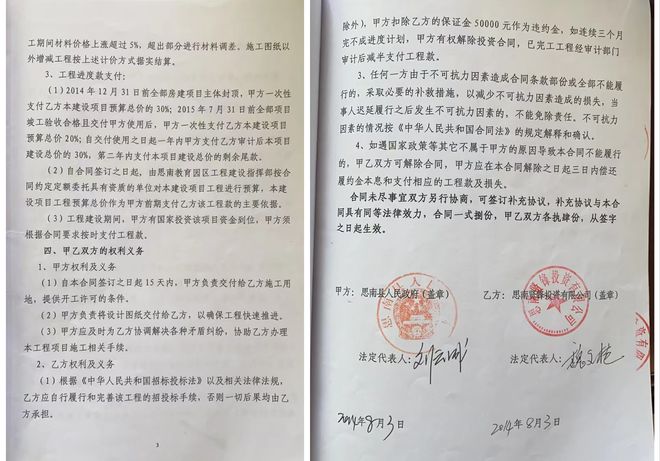 工期间材料价格上涨超过 5%，超出部分进行材料调差。施工图纸以
外增减工程按上述计价方式据实结算。
3、工程进度款支付：
（1）2014 年 12 月 31 日前全部房建项目主体封顶，甲方一次性
支付乙方本建设项目预算总价的 30%；2015 年 7 月 31 日前全部项目
竣工验收合格且交付甲方使用后，甲方一次性支付乙方本建设项目
预算总价 20%；自交付使用之日起一年内甲方支付乙方审计后本项目
建设总价的 30%，第二年内支付本项目建设总价的剩余尾款。
（2）自合同签订之日起，由思南教育园区工程建设指挥部按合
同约定定额委托具有资质的单位对本建设项目工程进行预算，本建
设项目工程预算总价作为甲方前期支付乙方该工程款的主要依据。
（3）工程建设期间，甲方有国家投资该项目资金到位，甲方须
根据合同要求按时支付工程款。
四、甲乙双方的权利义务
1、甲方权利及义务
（1）自本合同签订之日起 15 天内，甲方负责交付给乙方施工用
地，提供开工许可的条件。
（2）甲方负责将设计图纸交付给乙方，以确保工程快速推进。
（3）甲方应及时为乙方协调解决各种矛盾纠纷，协助乙方办理
本工程项目施工相关手续。
2、乙方权利及义务
（1）根据《中华人民共和国招标投标法》以及相关法律法规，
乙方应自行履行和完善该工程的招投标手续，否则一切后果均由乙
方承担。
3
除外)，甲方扣除乙方的保证金 50000 元作为违约金，如连续三个月
完不成进度计划，甲方有权解除投资合同，已完工工程经审计部门
审计后减半支付工程款。
3、任何一方由于不可抗力因素造成合同条款部份或全部不能履
行的，采取必要的补救措施，以减少不可抗力因素造成的损失，当
事人迟延履行之后发生不可抗力因素的，不能免除责任。不可抗力
因素的情况按《中华人民共和国合同法》的规定解释和确认。
4、如遇国家政策等其它不属于甲方的原因导致本合同不能履行
的，甲乙双方可解除合同，甲方应在本合同解除之日起三日内偿还
履约金本息和支付相应的工程款及损失。
合同未尽事宜双方另行协商，可签订补充协议，补充协议与本合
同具有同等法律效力，合同一式捌份，甲乙双方各执肆份，从签字
之日起生效。
甲方：思南县人民政府（盖章） 乙方：思南贤锋投资有限公司（盖章）
法定代表人： 法定代表人：
2014年8月3日 2014年8月3日